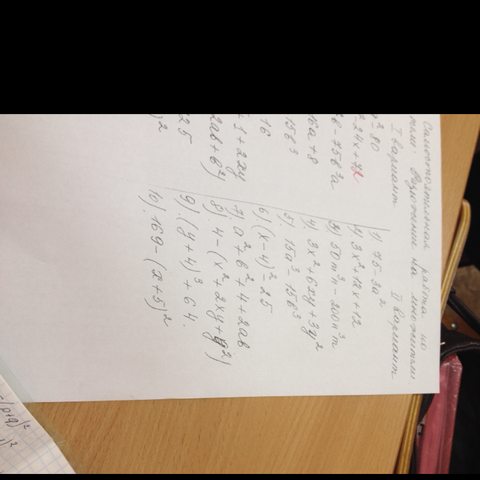 Самостоятельная работа по
теме: Разложение на множители
I вариант II вариант
1) 75-3a²
2) 3x²+12x+12
3) 50m³n-200n³m
4) 3x²+6xy+3y²
5) 15a³-15b³
6) (x-4)²-25
7) a²+b²+4+2ab
8) 4-(x²+2xy+y²)
9) (y+4)³+64
10) 169-(x+5)²
²-80
-24x+72
16a+8
15b³
16
1+2xy
2ab+b²)
25
)²